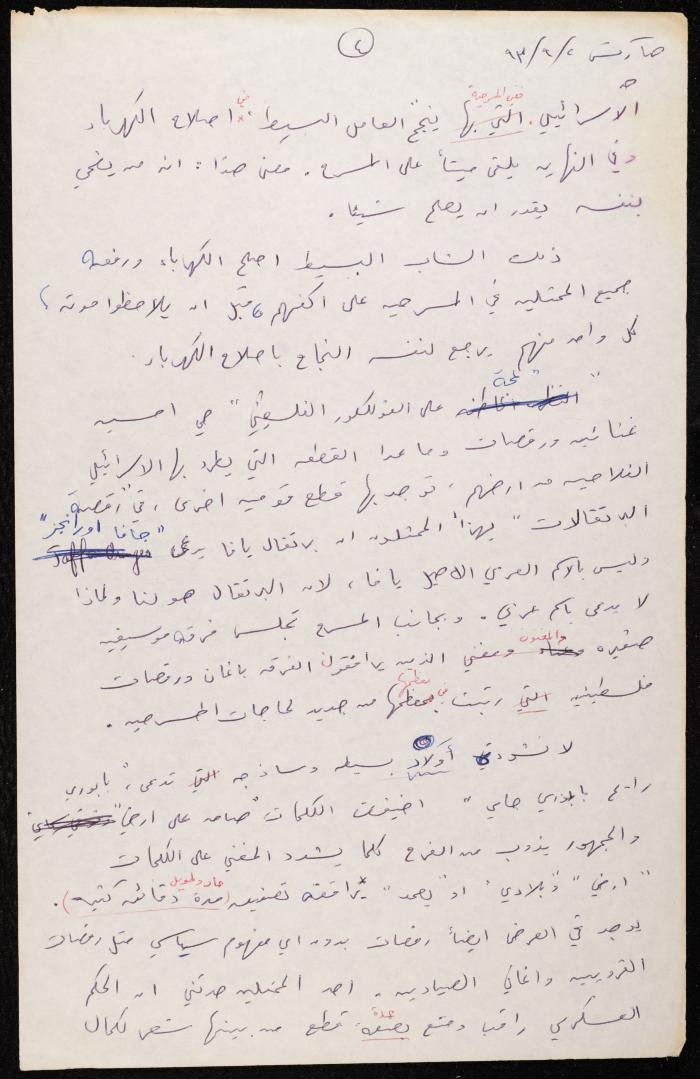 ٤
هآرتس ٩٣/٩/٢
الأسرائيلي. ففي المسرحية التي بها ينجح العامل البسيط في اصلاح الكهرباء
وفي النهايه يلقى ميتاً على المسرح. معنى هذا: انه من يضحي
بنفسه يقدر ان يصلح شيئا.
ذلك الشاب البسيط اصلح الكهرباء ورفعه
جميع الممثليه في المسرحيه على اكفهم قبل ان يلاحظوا موته،
كل واحد منهم يرجع لنفسه النجاح باصلاح الكهرباء.
" لمحة على الفولكلور الفلسطيني" هي امسيه
غنائيه ورقصات وما عدا القطعه التي يطرد بها الاسرائيلي
الفلاحيه من ارضهم، توجد بها قطع قوميه اخرى، في "رقصة
البرتقالات" يهزأ الممثلون ان برتقال يافا يدعى "جافا اورانجز" Jaffa Oranges
وليس بالاسم العربي الاصيل يافا، لان البرتقال هو لنا ولماذا
لا يدعى باسم عربي. وبجانب المسرح تجلس فرقه موسيقيه
صغيره والمغنون ومغني الذين يرافقون الفرقه باغان ورقصات
فلسطينيه التي رتبت في معظمها من جديد لحاجات المسرحيه.
لانشودة أولاد بسيطه وساذجه التي تدعى، "بابوري
رايح بابوري جاي" اضيفت الكلمات "صامد على ارضي"
والجمهور يذوب من الفرح كلما يشدد المغني على الكلمات
"ارضي" "وبلادي" او "يصمد" يرافقه تصفيق حاد وطويل (مدة دقائق كثيره).
يوجد في العرض ايضاً رقصات بدون اي مفهوم سياسي مثل رقصات
القرويين واغاني الصيادين. احد الممثلين حدثني ان الحكم
العسكري راقب ومنع بضعة عدة قطع من بينها شعر لكمال